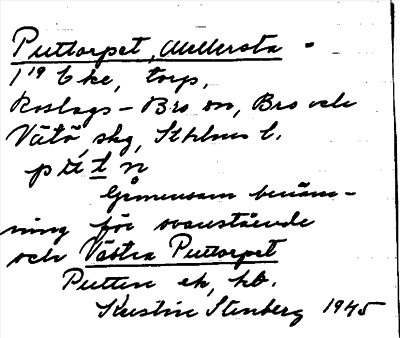 Puttorpet, Mellersta -
1 19 C ke, torp,
Roslags-Bro sn, Bro och
Vätö, skg, Sthlms l.
Gemensam benäm-
ning för ovanstående
och Västra Puttorpet
Putten ek, kb.
Kerstin Stenberg 1945